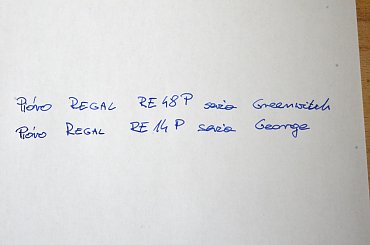 Pióro REGAL RE 48 P seria Greenwitch
Pióro REGAL RE 14 P seria George